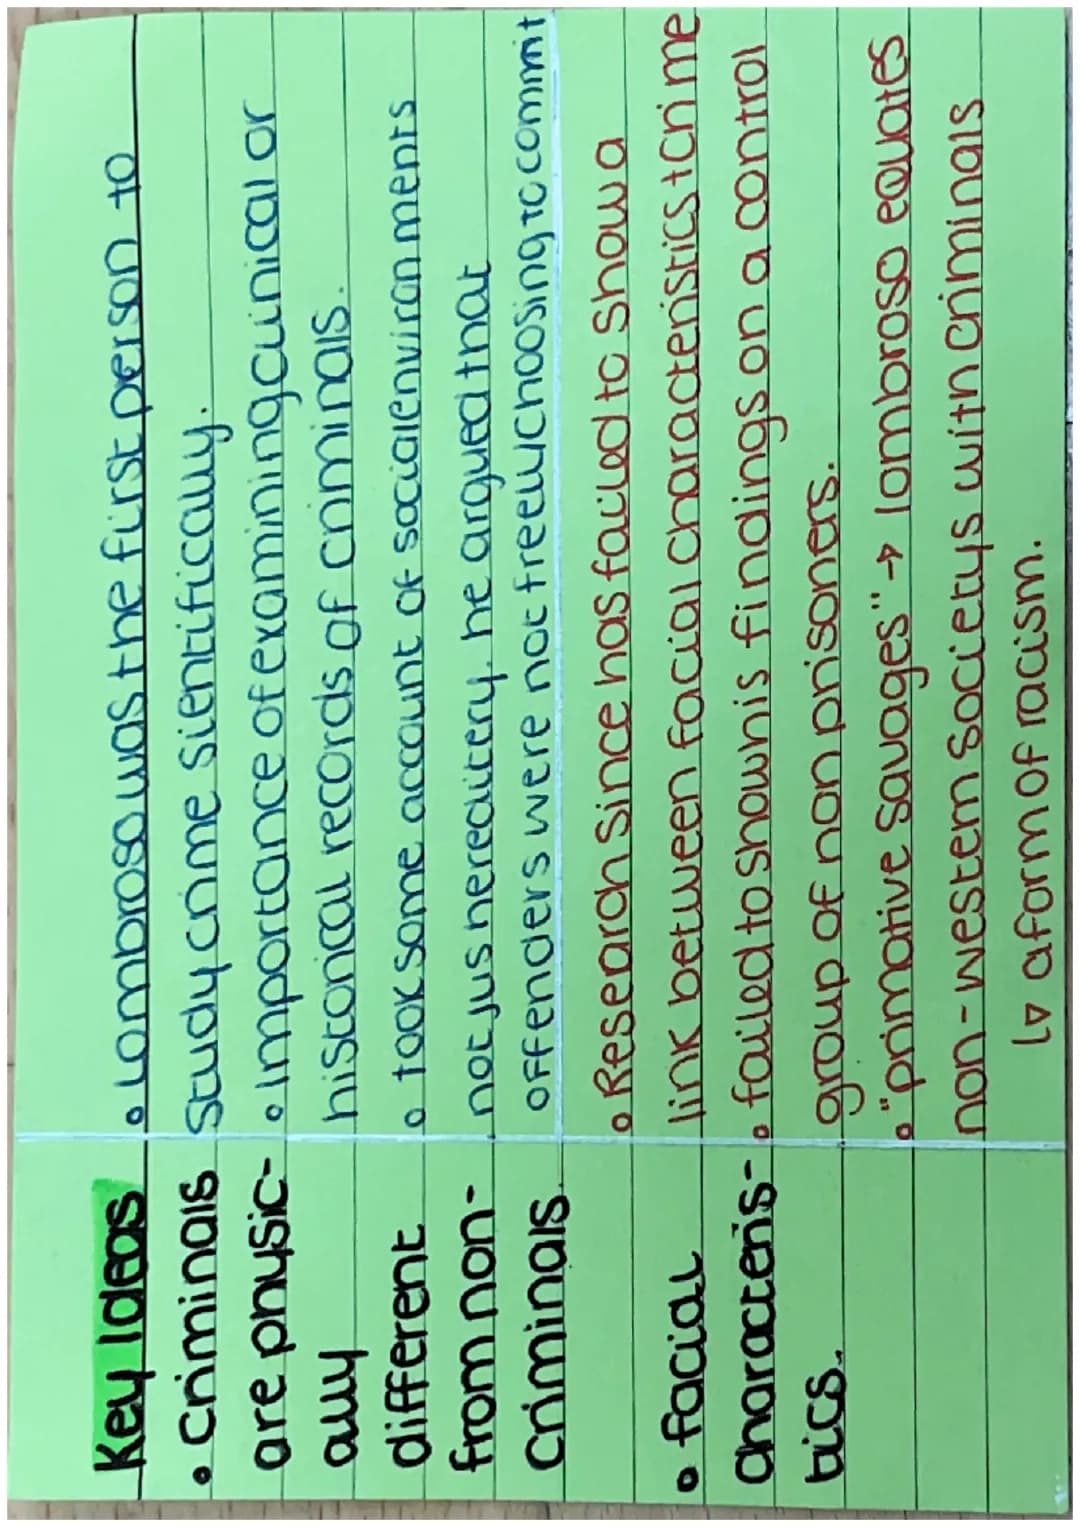 Key Ideas
• criminals
are physic-
ally
different
from non-
criminals.
• facial
characteris-
tics..
• Lombroso was the first person to
study crime sientifically.
• Importance of examining clinical or
historical records of criminals.
• took some account of social environments
not jus hereditery, he argued that
offenders were not freely choosing to commit
• Research since has failed to show a
link between facial characteristics + crime
• failed to show his findings on a control
group of non prisoners.
• "primative savages" → lombroso equates
non-western societys with criminals
↳ a form of racism.